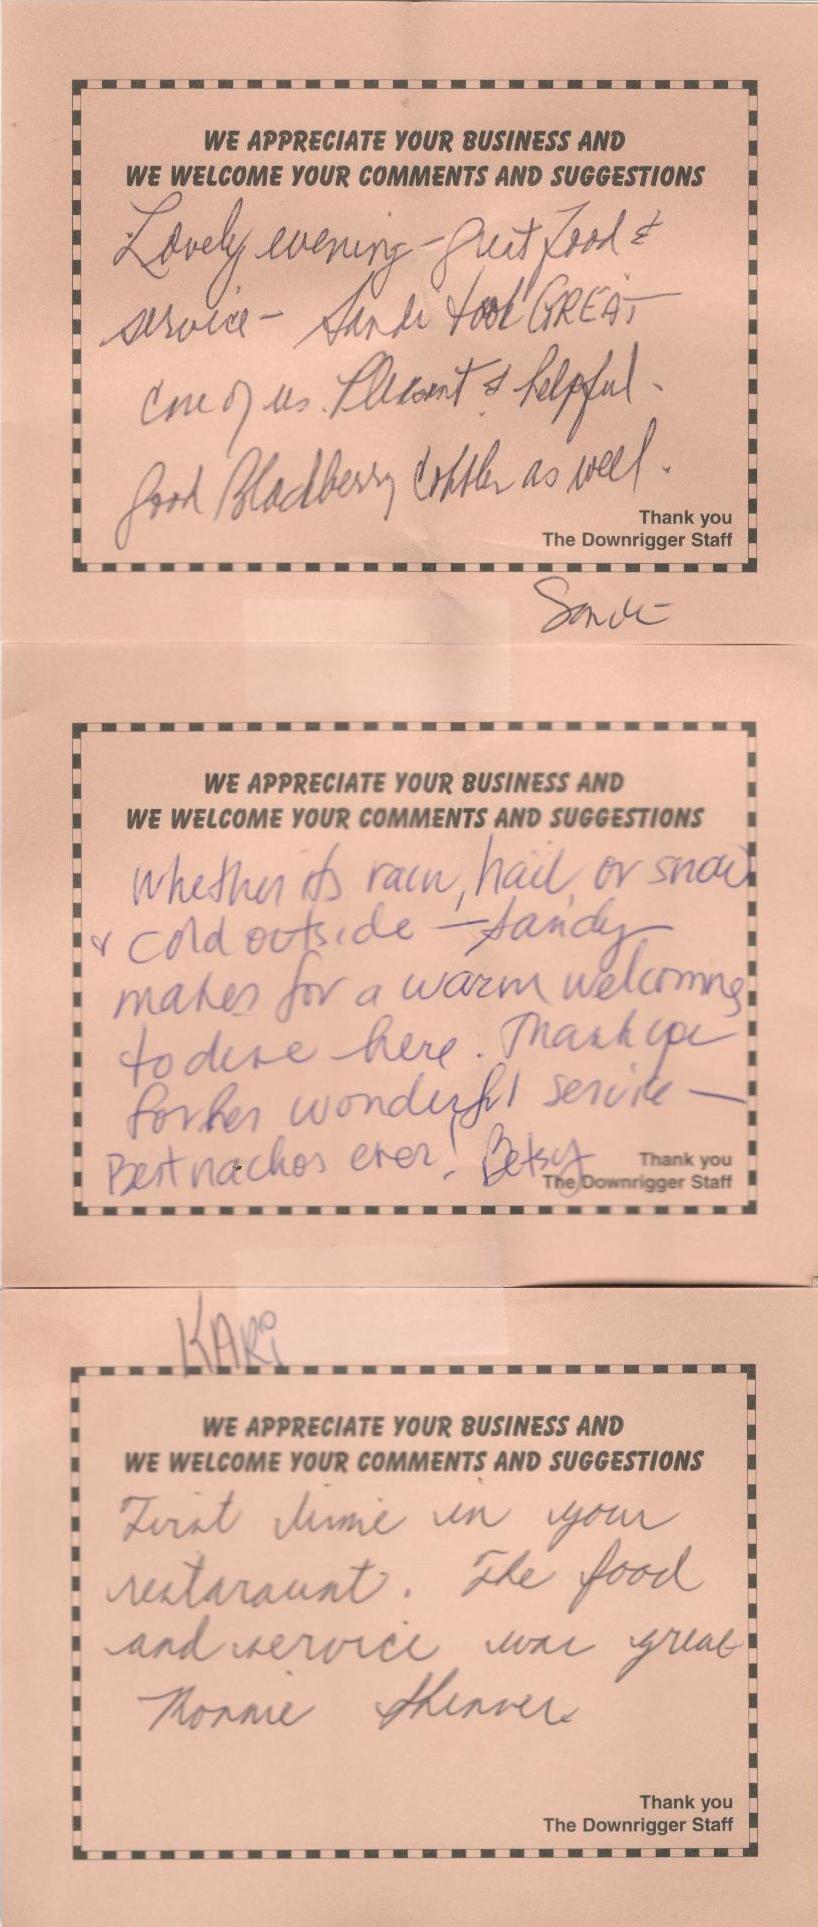 WE APPRECIATE YOUR BUSINESS AND
WE WELCOME YOUR COMMENTS AND SUGGESTIONS
Lovely evening - great food &
service - Sandi took GREAT
care of us. Pleasant & helpful.
Good Blackberry Cobbler as well.
Thank you
The Downrigger Staff
Sandi
WE APPRECIATE YOUR BUSINESS AND
WE WELCOME YOUR COMMENTS AND SUGGESTIONS
Whether its rain, hail, or snow
& cold outside - Sandy
makes for a warm welcoming
to dine here. Thank you
for her wonderful service -
Best nachos ever! Betsy
Thank you
The Downrigger Staff
KARi
WE APPRECIATE YOUR BUSINESS AND
WE WELCOME YOUR COMMENTS AND SUGGESTIONS
First time in your
restaraunt. The food
and service was great
Thank you
The Downrigger Staff